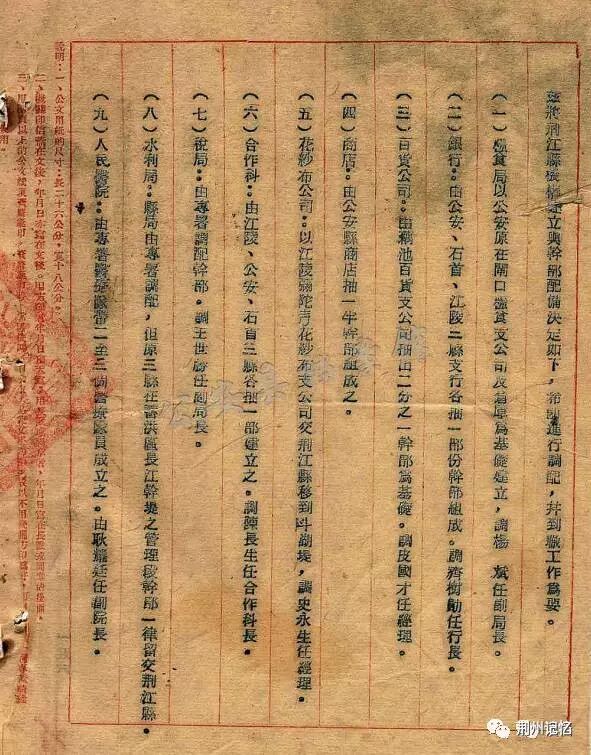 茲將荆江縣機構建立與幹部配備決定如下，希卽進行調配，幷到職工作爲要。
（一）糧食局以公安原在閘口糧食支公司及倉庫爲基礎建立，調楊　斌任副局長。
（二）銀行：由公安、石首、江陵三縣支行各抽一部份幹部組成。調齊樹勛任行長。
（三）百貨公司：由藕池百貨支公司抽出二分之一幹部爲基礎。調皮國才任經理。
（四）商店：由公安縣商店抽一半幹部組成之。
（五）花紗布公司：以江陵彌陀寺花紗布支公司交荆江縣移到斗湖堤，調史永生任經理。
（六）合作科：由江陵、公安、石首三縣各抽一部建立之。調陳長生任合作科長。
（七）稅局：由專署調配幹部。調王世勝任副局長。
（八）水利局：縣局由專署調配，但原三縣在蓄洪區長江幹堤之管理段幹部一律留交荆江縣。
（九）人民醫院：由專署醫療隊留一至三個醫療隊員成立之。由耿耀廷任副院長。
說明：一、公文用紙的尺寸：長二十六公分，寬十八公分。
二、機關印信蓋在文後，年月日亦寫在文後。
三、用
荆州记忆